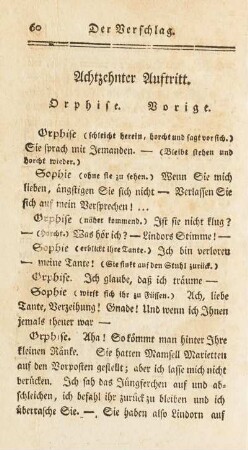 60 Der Verschlag.
Achtzehnter Auftritt.
Orphise. Vorige.
Orphise (schleicht herein, horcht und sagt vor sich.)
Sie sprach mit Jemanden. — (Bleibt stehen und
horcht wieder.)
Sophie (ohne sie zu sehen.) Wenn Sie mich
lieben, ängstigen Sie sich nicht — Verlassen Sie
sich auf mein Versprechen! ...
Orphise (näher kommend.) Ist sie nicht klug?
— (horcht.) Was hör ich? — Lindors Stimme! —
Sophie (erblickt ihre Tante.) Ich bin verloren
— meine Tante! (Sie sinkt auf den Stuhl zurück.)
Orphise. Ich glaube, daß ich träume —
Sophie (wirft sich ihr zu Füssen.) Ach, liebe
Tante, Verzeihung! Gnade! Und wenn ich Ihnen
jemals theuer war —
Orphise. Aha! So kömmt man hinter Ihre
kleinen Ränke. Sie hatten Mamsell Marietten
auf den Vorposten gestellt; aber ich lasse mich nicht
berücken. Ich sah das Jüngferchen auf und ab-
schleichen, ich befahl ihr zurück zu bleiben und ich
überrasche Sie. — Sie haben also Lindorn auf